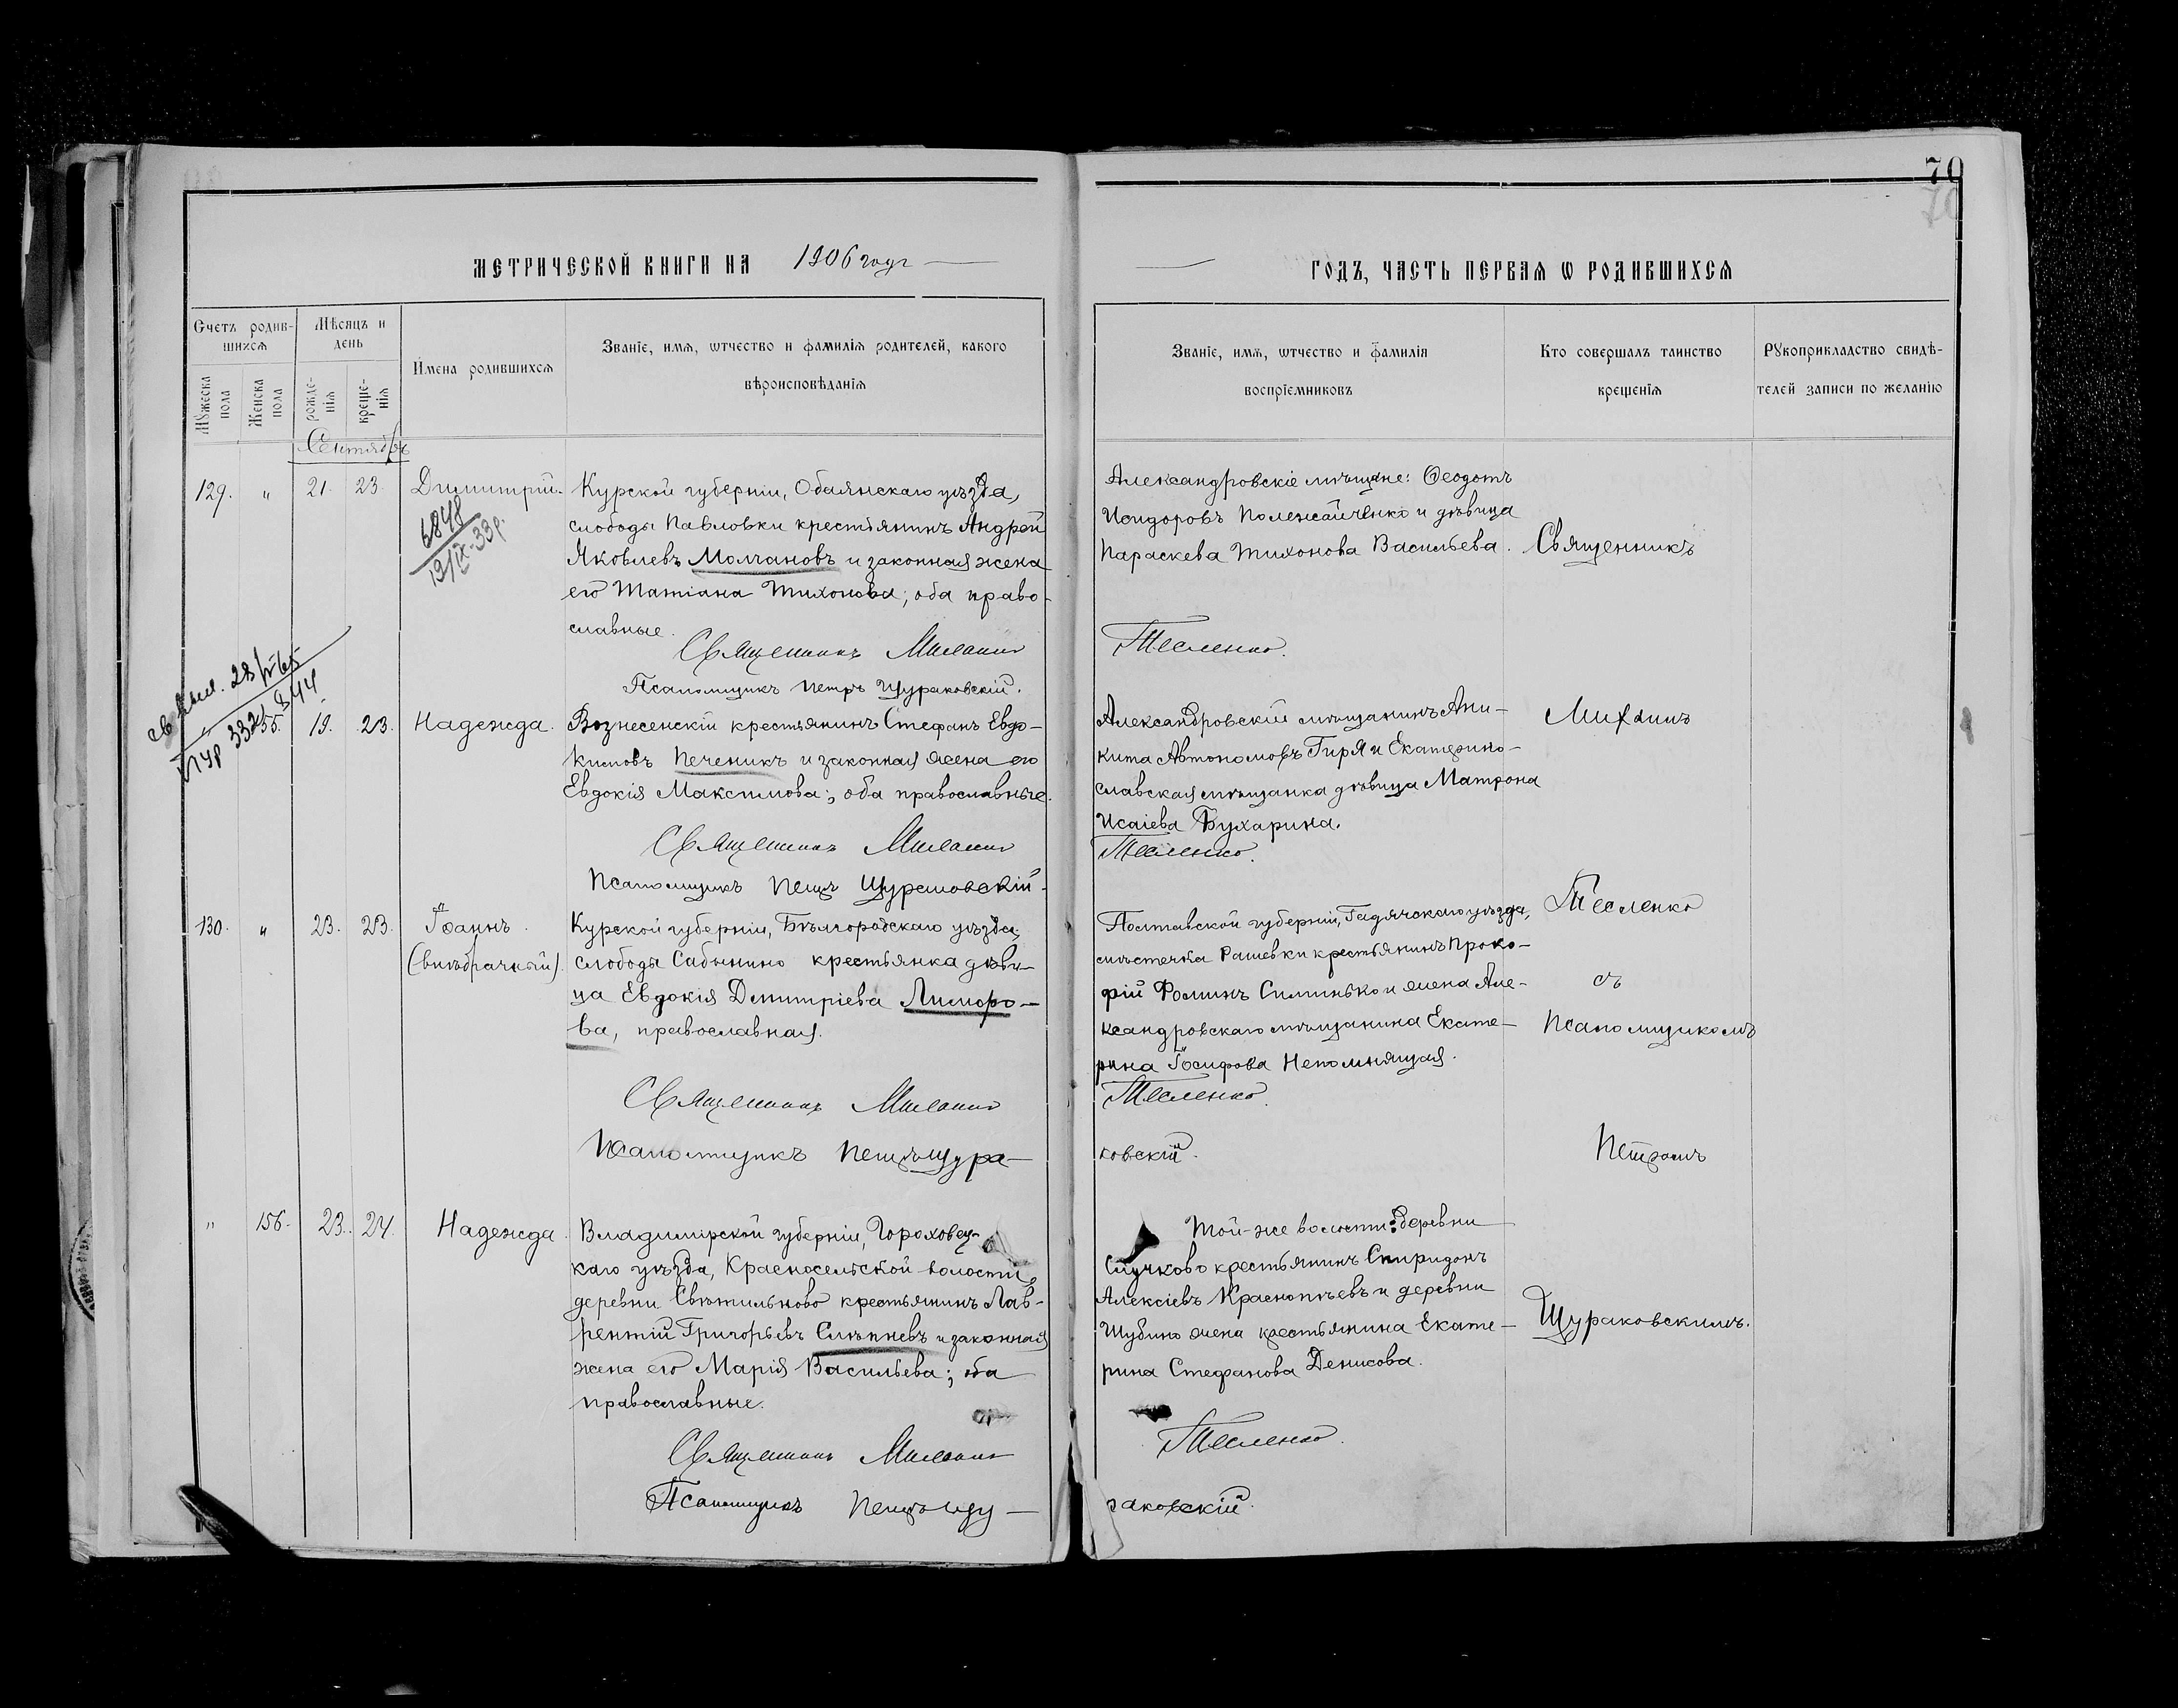 70
70
МЕТРИЧЕСКОЙ КНИГИ НА 1906 годъ
ГОДЪ, ЧАСТЬ ПЕРВАЯ Ѡ РОДИВШИХСЯ
Счетъ родив-
шихся
Мужеска пола
Женска пола
Мѣсяцъ и
день
рожде-
нія
креще-
нія
Имена родившихся
Званіе, имя, ѡтчество и фамилія родителей, какого
вѣроисповѣданія
Званіе, имя, ѡтчество и фамилія
воспріемниковъ
Кто совершалъ таинство
крещенія
Рукоприкладство свидѣ-
телей записи по желанію
Сентябрь
129. " 21. 23. Димитрій.
6848
19/IX-33р.
Курской губерніи, Обаянскаго уѣзда,
слободы Павловки крестьянинъ Андрей
Яковлевъ Молчановъ и законная жена
его Татіана Тихонова; оба право-
славные.
Священникъ Михаилъ
Псаломщикъ Петръ Щураковскій.
Александровскіе мѣщане: Ѳеодотъ
Исидоровъ Полежайченко и дѣвица
Параскева Тихонова Васильева.
Тесленко.
Священникъ
" 155. 19. 23. Надежда.
Вознесенскій крестьянинъ Стефанъ Евдо-
кимовъ Печеникъ и законная жена его
Евдокія Максимова; оба православные.
Священникъ Михаилъ
Псаломщикъ Петръ Щураковскій.
Александровскій мѣщанинъ Ани-
кита Автономовъ Гиря и Екатерино-
славская мѣщанка дѣвица Матрона
Исаіева Бухарина.
Тесленко.
Михаилъ
130. " 23. 23. Іоаннъ.
(внѣбрачный).
Курской губерніи, Бѣлгородскаго уѣзда,
слободы Сабынино крестьянка дѣви-
ца Евдокія Димитріева Лиморо-
ва, православная.
Священникъ Михаилъ
Псаломщикъ Петръ Щура-
Полтавской губерніи, Гадячскаго уѣзда,
мѣстечка Рашевки крестьянинъ Проко-
фій Фоминъ Симинько и жена Але-
ксандровскаго мѣщанина Екате-
рина Іосифова Непомнящая.
Тесленко.
ковскій.
Тесленко
съ
Псаломщикомъ
Петромъ
" 156. 23. 24. Надежда.
Владимірской губерніи, Гороховец-
каго уѣзда, Красносельской волости,
деревни Свѣтильново крестьянинъ Лав-
рентій Григорьевъ Слѣпневъ и законная
жена его Марія Васильева; оба
православные.
Священникъ Михаилъ
Псаломщикъ Петръ Щу-
Той-же волости: деревни
Случково крестьянинъ Спиридонъ
Алексіевъ Краснопѣевъ и деревни
Шубино жена крестьянина Екате-
рина Стефанова Денисова.
Тесленко.
раковскій.
Щураковскимъ.